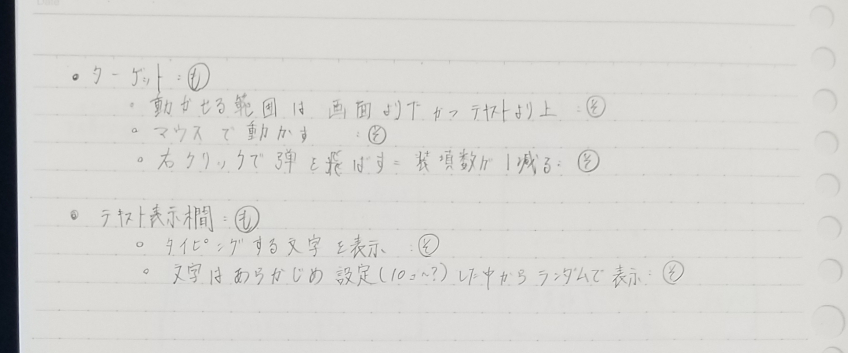 • ターゲット:㋲
◦ 動かせる範囲は 画面より下かつテキストより上 :㋞
◦ マウスで動かす :㋞
◦ 右クリックで弾を飛ばす = 装填数が1減る:㋞
• テキスト表示欄:㋲
◦ タイピングする文字を表示 :㋞
◦ 文字はあらかじめ設定(10コ~?)した中からランダムで表示:㋞